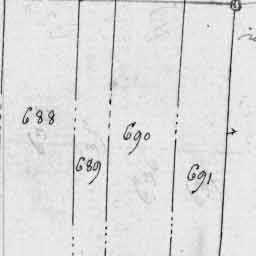 688
689
690
691